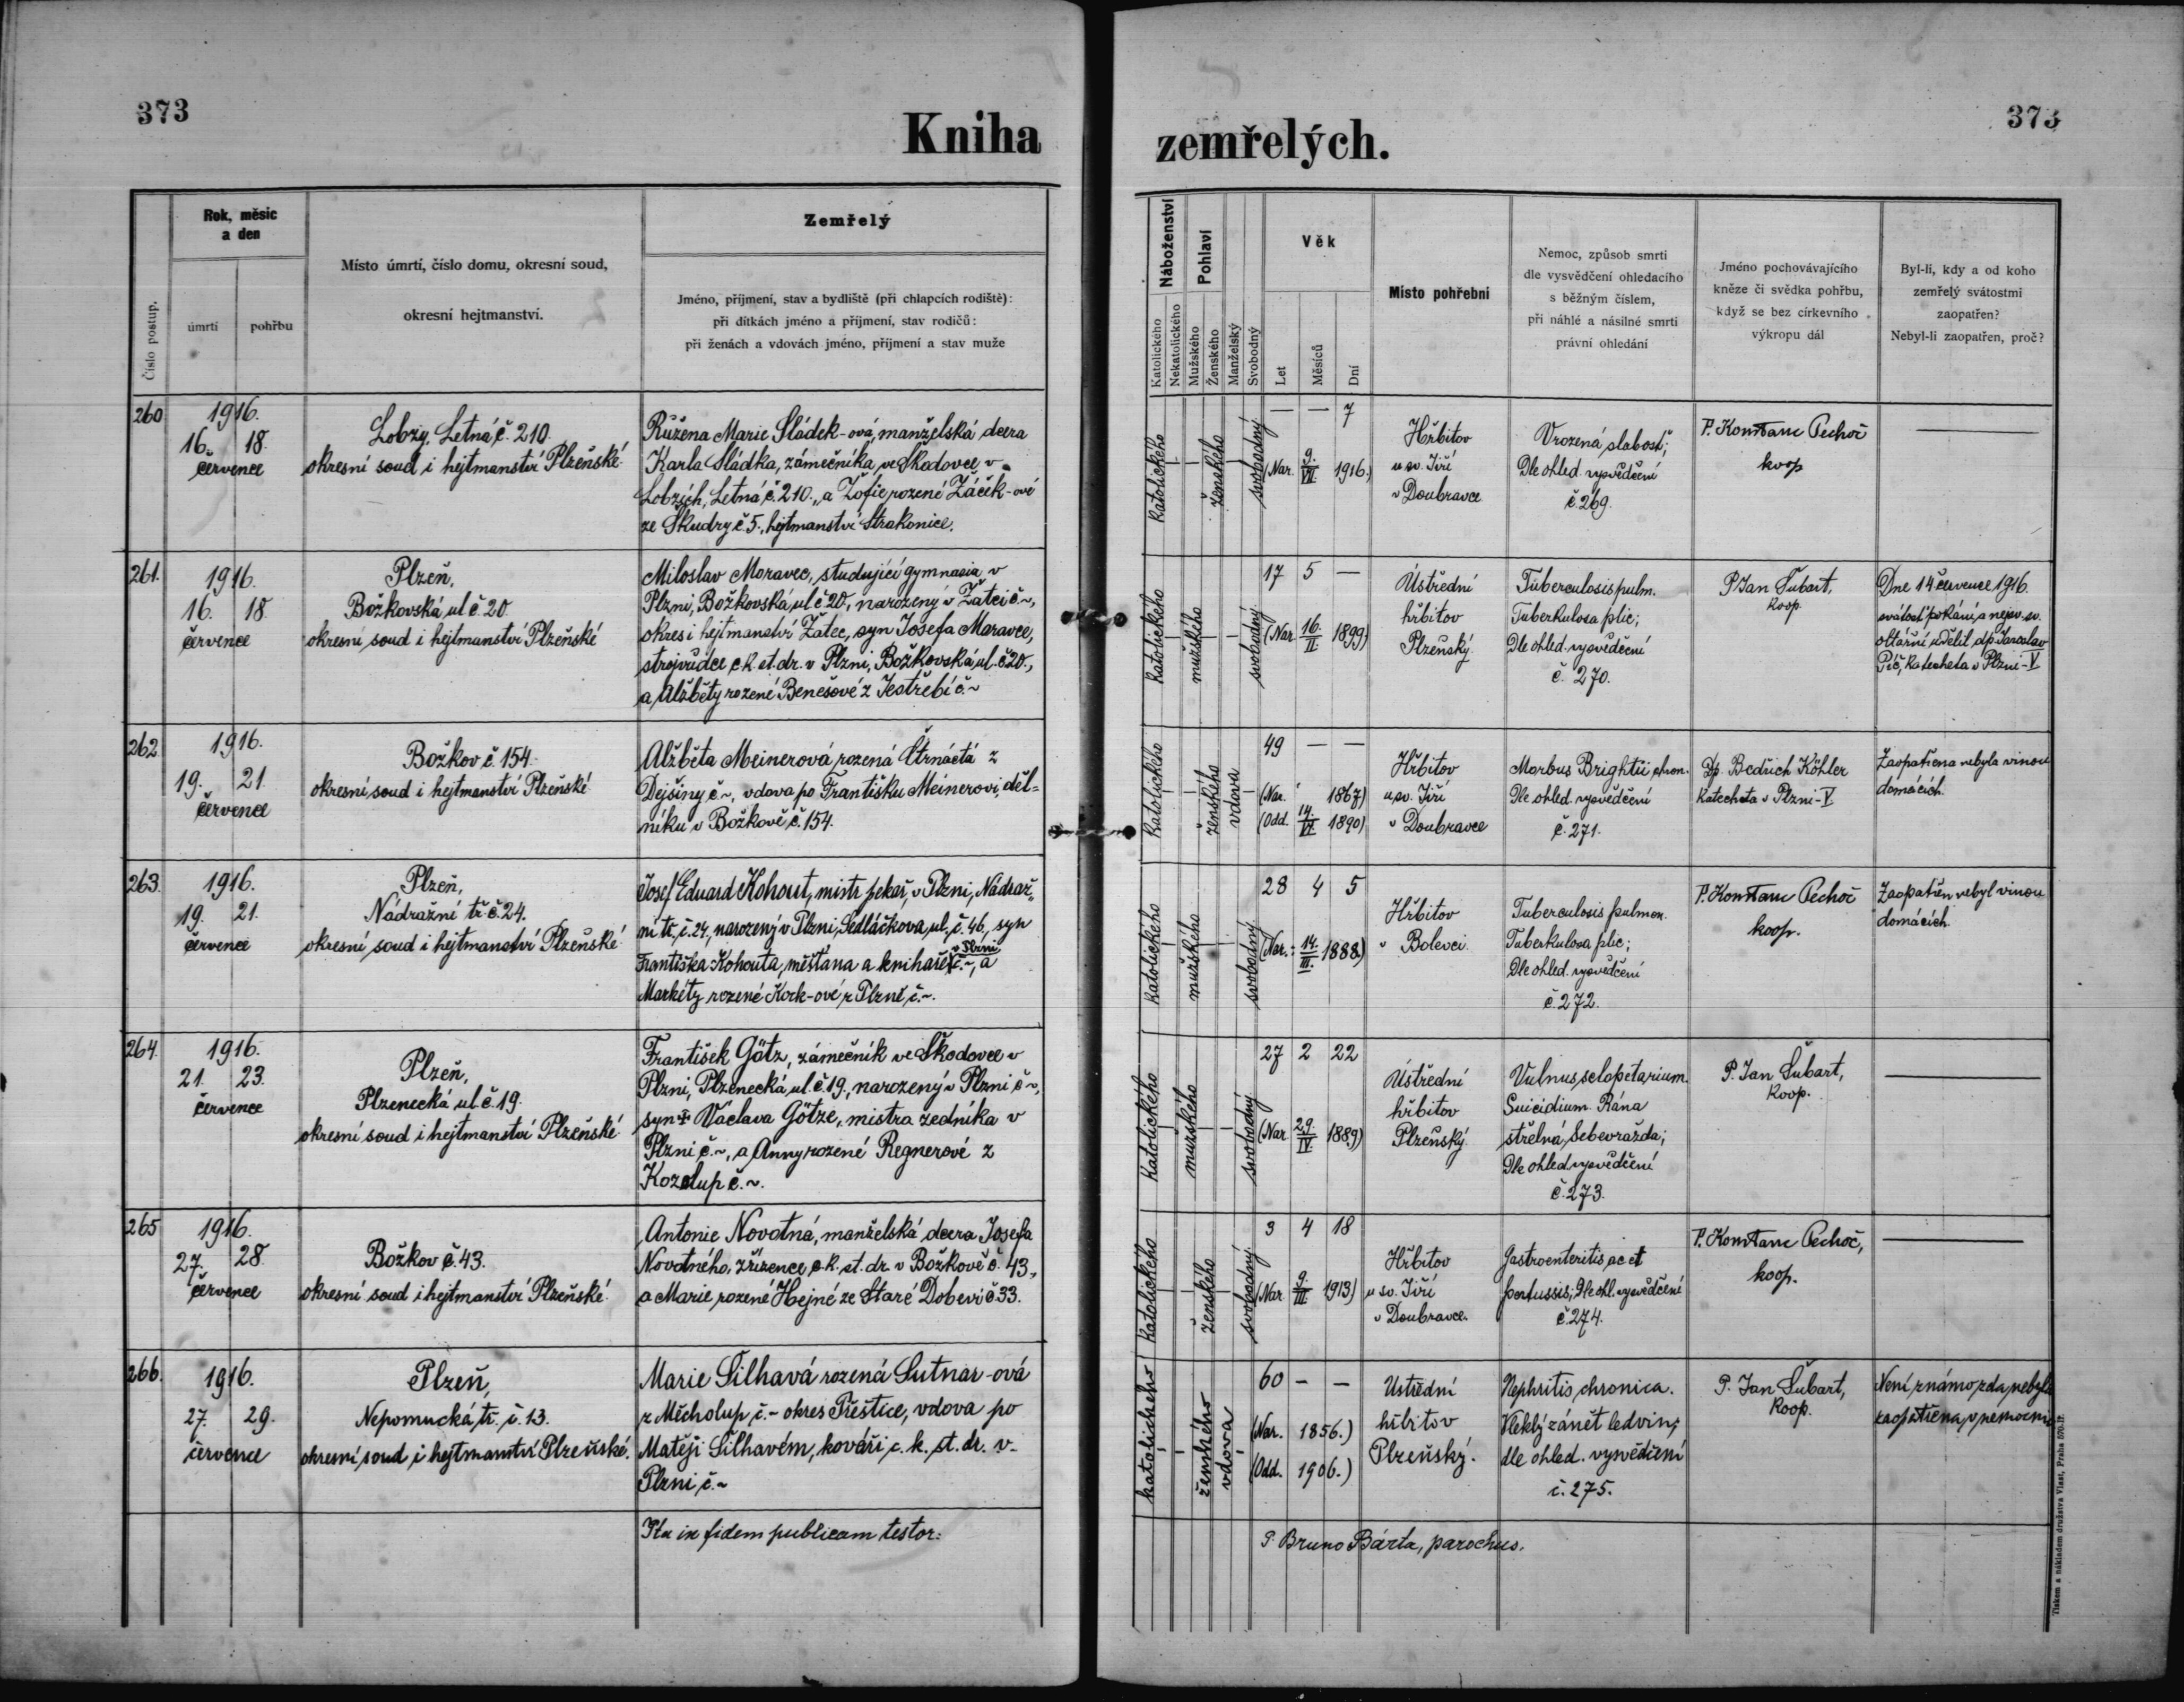 373
Kniha
zemřelých.
373
Číslo postup.
Rok, měsíc
a den
úmrtí
pohřbu
Místo úmrtí, číslo domu, okresní soud,
okresní hejtmanství.
Zemřelý
Jméno, příjmení, stav a bydliště (při chlapcích rodiště):
při dítkách jméno a příjmení, stav rodičů:
při ženách a vdovách jméno, příjmení a stav muže
Náboženství
Katolického
Nekatolického
Pohlaví
Mužského
Ženského
Manželský
Svobodný
Věk
Let
Měsíců
Dní
Místo pohřební
Nemoc, způsob smrti
dle vysvědčení ohledacího
s běžným číslem,
při náhlé a násilné smrti
právní ohledání
Jméno pochovávajícího
kněze či svědka pohřbu,
když se bez církevního
výkropu dál
Byl-li, kdy a od koho
zemřelý svátostmi
zaopatřen?
Nebyl-li zaopatřen, proč?
260
1916.
16. 18.
července
Lobzy, Letná č. 210.
okresní soud i hejtmanství Plzeňské
Růžena Marie Sládek-ová, manželská dcera
Karla Sládka, zámečníka ve Škodovce v
Lobzích, Letná č. 210., a Žofie rozené Žáček-ové
ze Škudry č 5., hejtmanství Strakonice.
katolického
ženského
svobodný
— — 7
(Nar. 9. VII. 1916.)
Hřbitov
u sv. Jiří
v Doubravce
Vrozená slabost;
Dle ohled. vysvědčení
č. 269.
P. Konstanc Pechoč
koop
—
261.
1916.
16. 18.
července
Plzeň,
Božkovská ul č 20.
okresní soud i hejtmanství Plzeňské
Miloslav Moravec, studující gymnasia v
Plzni, Božkovská ul č 20, narozený v Žatci č ~,
okres i hejtmanství Žatec, syn Josefa Moravce,
strojvůdce c k. st. dr. v Plzni, Božkovská ul. č 20.,
a Alžběty rozené Benešové z Jestřebí č. ~
katolického
mužského
svobodný
17 5 —
(Nar. 16. II. 1899)
Ústřední
hřbitov
Plzeňský.
Tuberculosis pulm.
Tuberkulosa plic;
Dle ohled. vysvědčení
č. 270.
P Jan Šubart,
koop.
Dne 14 července 1916.
svátost pokání a nejsv. sv.
oltářní udělil dp. Jaroslav
Péč, katecheta v Plzni-V
262
1916.
19. 21
července
Božkov č. 154.
okresní soud i hejtmanství Plzeňské
Alžběta Meinerová rozená Štrnáctá z
Dejšiny č ~, vdova po Františku Meinerovi, děl=
níku v Božkově č. 154.
katolického
ženského
vdova
49 — —
(Nar. 1867)
(Odd. 14. VI. 1890)
Hřbitov
u sv. Jiří
v Doubravce
Morbus Brightii chron.
Dle ohled. vysvědčení
č. 271.
Dp. Bedřich Köhler
Katecheta v Plzni-V
Zaopatřena nebyla vinou
domácích.
263.
1916.
19. 21.
července
Plzeň,
Nádražní tř. č. 24.
okresní soud i hejtmanství Plzeňské
Josef Eduard Kohout, mistr pekař, v Plzni, Nádraž„
ní tř. č. 24., narozený v Plzni, Sedláčkova ul. č. 46, syn
v Plzni
Františka Kohouta, měšťana a knihaře č. ~, a
Markéty rozené Kock-ové z Plzně č. ~.
katolického
mužského
svobodný
28 4 5
(Nar.: 14. III. 1888.)
Hřbitov
v Bolevci.
Tuberculosis pulmon.
Tuberkulosa plic;
Dle ohled. vysvědčení
č. 272.
P. Konstanc Pechoč
koop.
Zaopatřen nebyl vinou
domácích.
264.
1916.
21. 23.
července
Plzeň,
Plzenecká ul. č. 19.
okresní soud i hejtmanství Plzeňské
František Götz, zámečník ve Škodovce v
Plzni, Plzenecká ul. č 19., narozený v Plzni č ~,
syn ‡ Václava Götze, mistra zedníka v
Plzni č. ~, a Anny rozené Regnerové z
Kozolup č. ~.
katolického
mužského
svobodný
27 2 22
(Nar. 29. IV. 1889)
Ústřední
hřbitov
Plzeňský.
Vulnus sclopetarium.
Suicidium. Rána
střelná, Sebevražda;
Dle ohled. vysvědčení
č. 273.
P. Jan Šubart,
koop.
—
265
1916.
27. 28.
července
Božkov č. 43.
okresní soud i hejtmanství Plzeňské.
Antonie Novotná, manželská dcera Josefa
Novotného, zřízence c. k. st. dr. v Božkově č. 43.,
a Marie rozené Hejné ze Staré Dobevi č 33.
katolického
ženského
svobodný
3 4 18
(Nar. 9. III. 1913)
Hřbitov
u sv. Jiří
v Doubravce.
Gastroenteritis ac et
pertussis; Dle ohl. vysvědčení
č. 274.
P. Konstanc Pechoč,
koop.
—
266.
1916.
27. 29.
července
Plzeň,
Nepomucká tř. č. 13.
okresní soud i hejtmanství Plzeňské.
Marie Šilhavá rozená Sutnar-ová
z Měcholup č. - okres Přeštice, vdova po
Matěji Šilhavém, kováři c. k. st. dr. v
Plzni č. ~
katolického
ženského
vdova
60 - -
(Nar. 1856.)
(Odd. 1906.)
Ústřední
hřbitov
Plzeňský.
Nephritis chronica.
Vleklý zánět ledvin;
dle ohled. vysvědčení
č. 275.
P. Jan Šubart,
koop.
Není známo, zda nebyla
zaopatřena v nemocnici
Ita in fidem publicam testor:
P. Bruno Bárta, parochus.
Tiskem a nákladem družstva Vlast, Praha